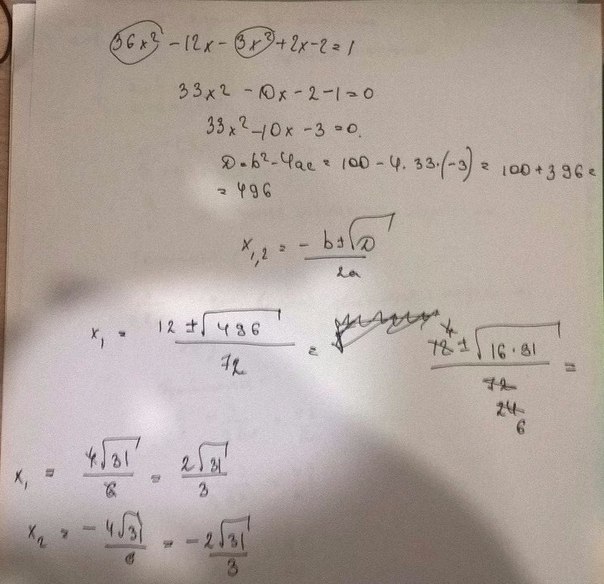 36x² - 12x - 3x² + 2x - 2 = 1
33x² - 10x - 2 - 1 = 0
33x² - 10x - 3 = 0.
D = b² - 4ac = 100 - 4 · 33 · (-3) = 100 + 396 =
= 496
x₁,₂ = (- b ± √D) / 2a
x₁ = (12 ± √496) / 72 = (4 ± √16 · 31) / 6 =
x₁ = 4√31 / 6 = 2√31 / 3
x₂ = - 4√31 / 6 = - 2√31 / 3